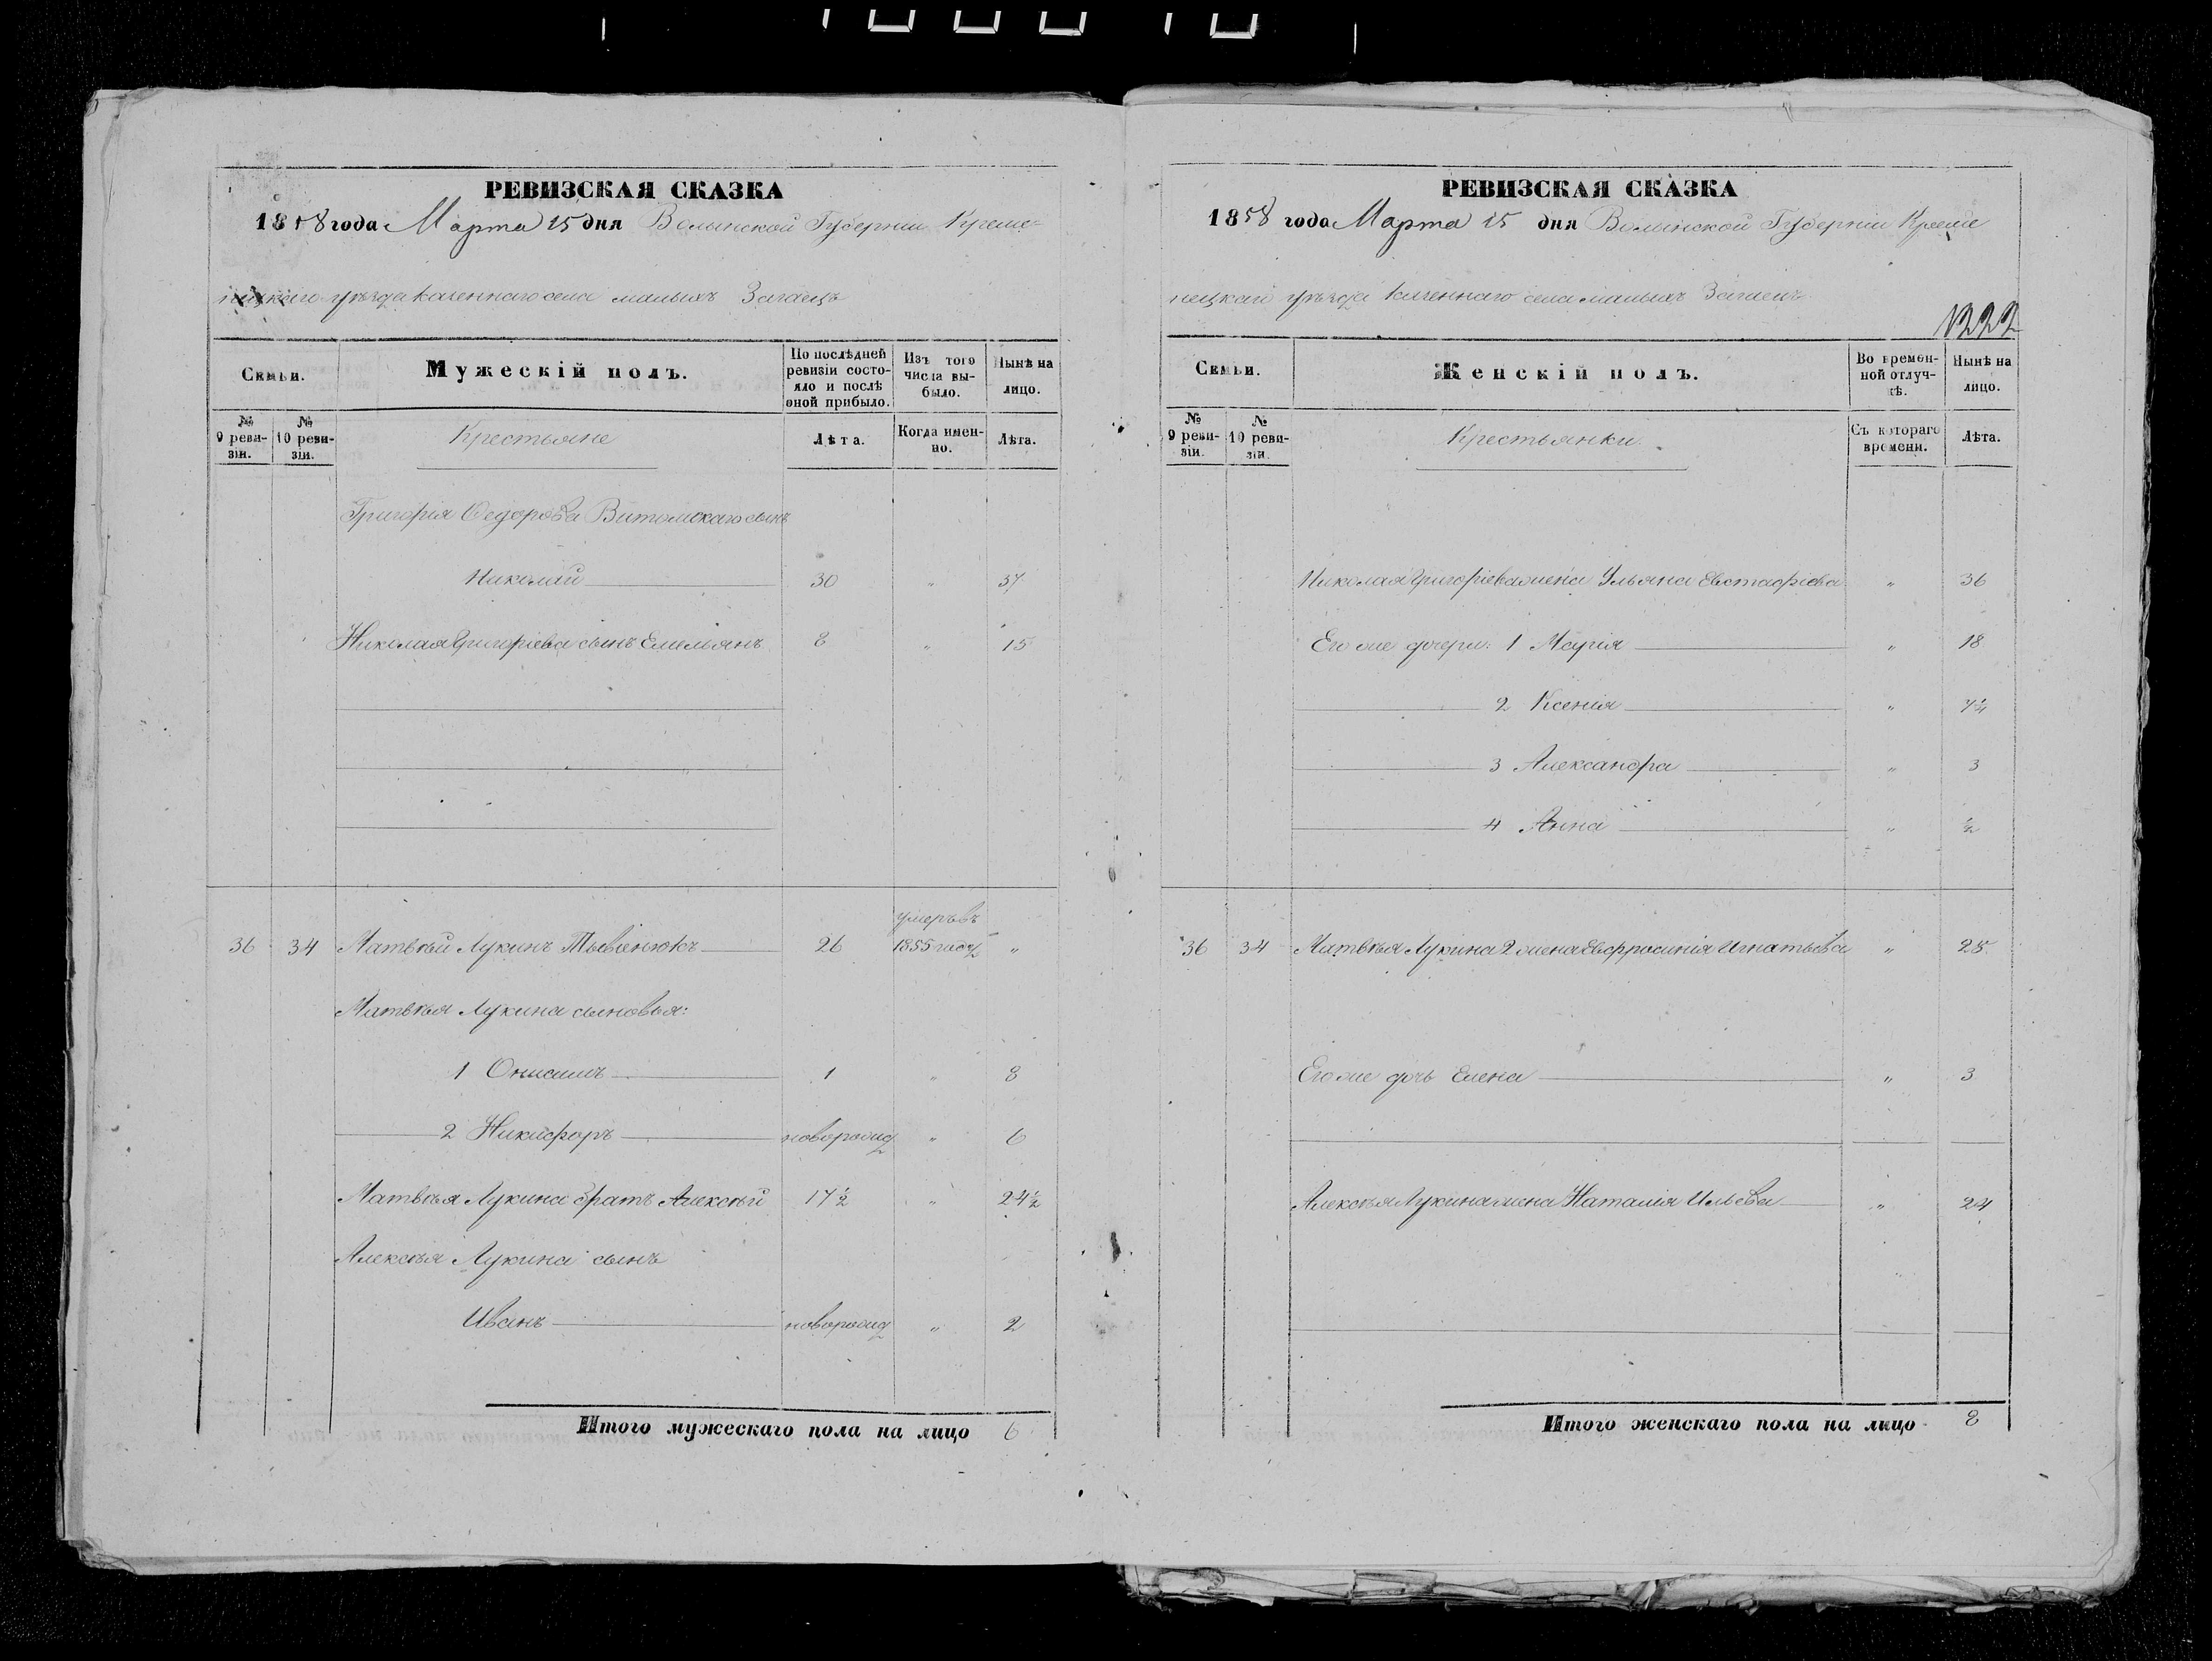 РЕВИЗСКАЯ СКАЗКА
1858 года Марта 15 дня Волынской Губерніи Креме-
нецкаго уѣзда казеннаго села малыхъ Загаецъ
Семьи.
Мужескій полъ.
По послѣдней ревизіи состояло и послѣ оной прибыло.
Изъ того числа выбыло.
Нынѣ на лицо.
№ 9 ревизіи.
№ 10 ревизіи.
Крестьяне
Лѣта.
Когда именно.
Лѣта.
Григорія Федорова Витомскаго сынъ
Николай 30 " 37
Николая Григорьева сынъ Емельянъ 8 " 15
умеръ въ
36 34 Матвѣй Лукинъ 26 1855 году "
Матвѣя Лукина сыновья:
1 Онисимъ 1 " 8
2 Никифоръ новорожд " 6
Матвѣя Лукина братъ Алексѣй 17½ " 24½
Алексѣя Лукина сынъ
Иванъ новорожд " 2
Итого мужескаго пола на лицо 6
РЕВИЗСКАЯ СКАЗКА
1858 года Марта 15 дня Волынской Губерніи Креме
нецкаго уѣзда казеннаго села малыхъ Загаецъ
1222
Семьи.
Женскій полъ.
Во временной отлучкѣ.
Нынѣ на лицо.
№ 9 ревизіи.
№ 10 ревизіи.
Крестьянки
Съ котораго времени.
Лѣта.
Николая Григорьева жена Ульяна Евстафіева " 36
Его же дочери: 1 Марія " 18
2 Ксенія " 7¼
3 Александра " 3
4 Анна " ½
36 34 Матвѣя Лукина 2 жена Евфросинія Игнатьева " 25
Его же дочь Елена " 3
Алексѣя Лукина жена Наталія Ильева " 24
Итого женскаго пола на лицо 8